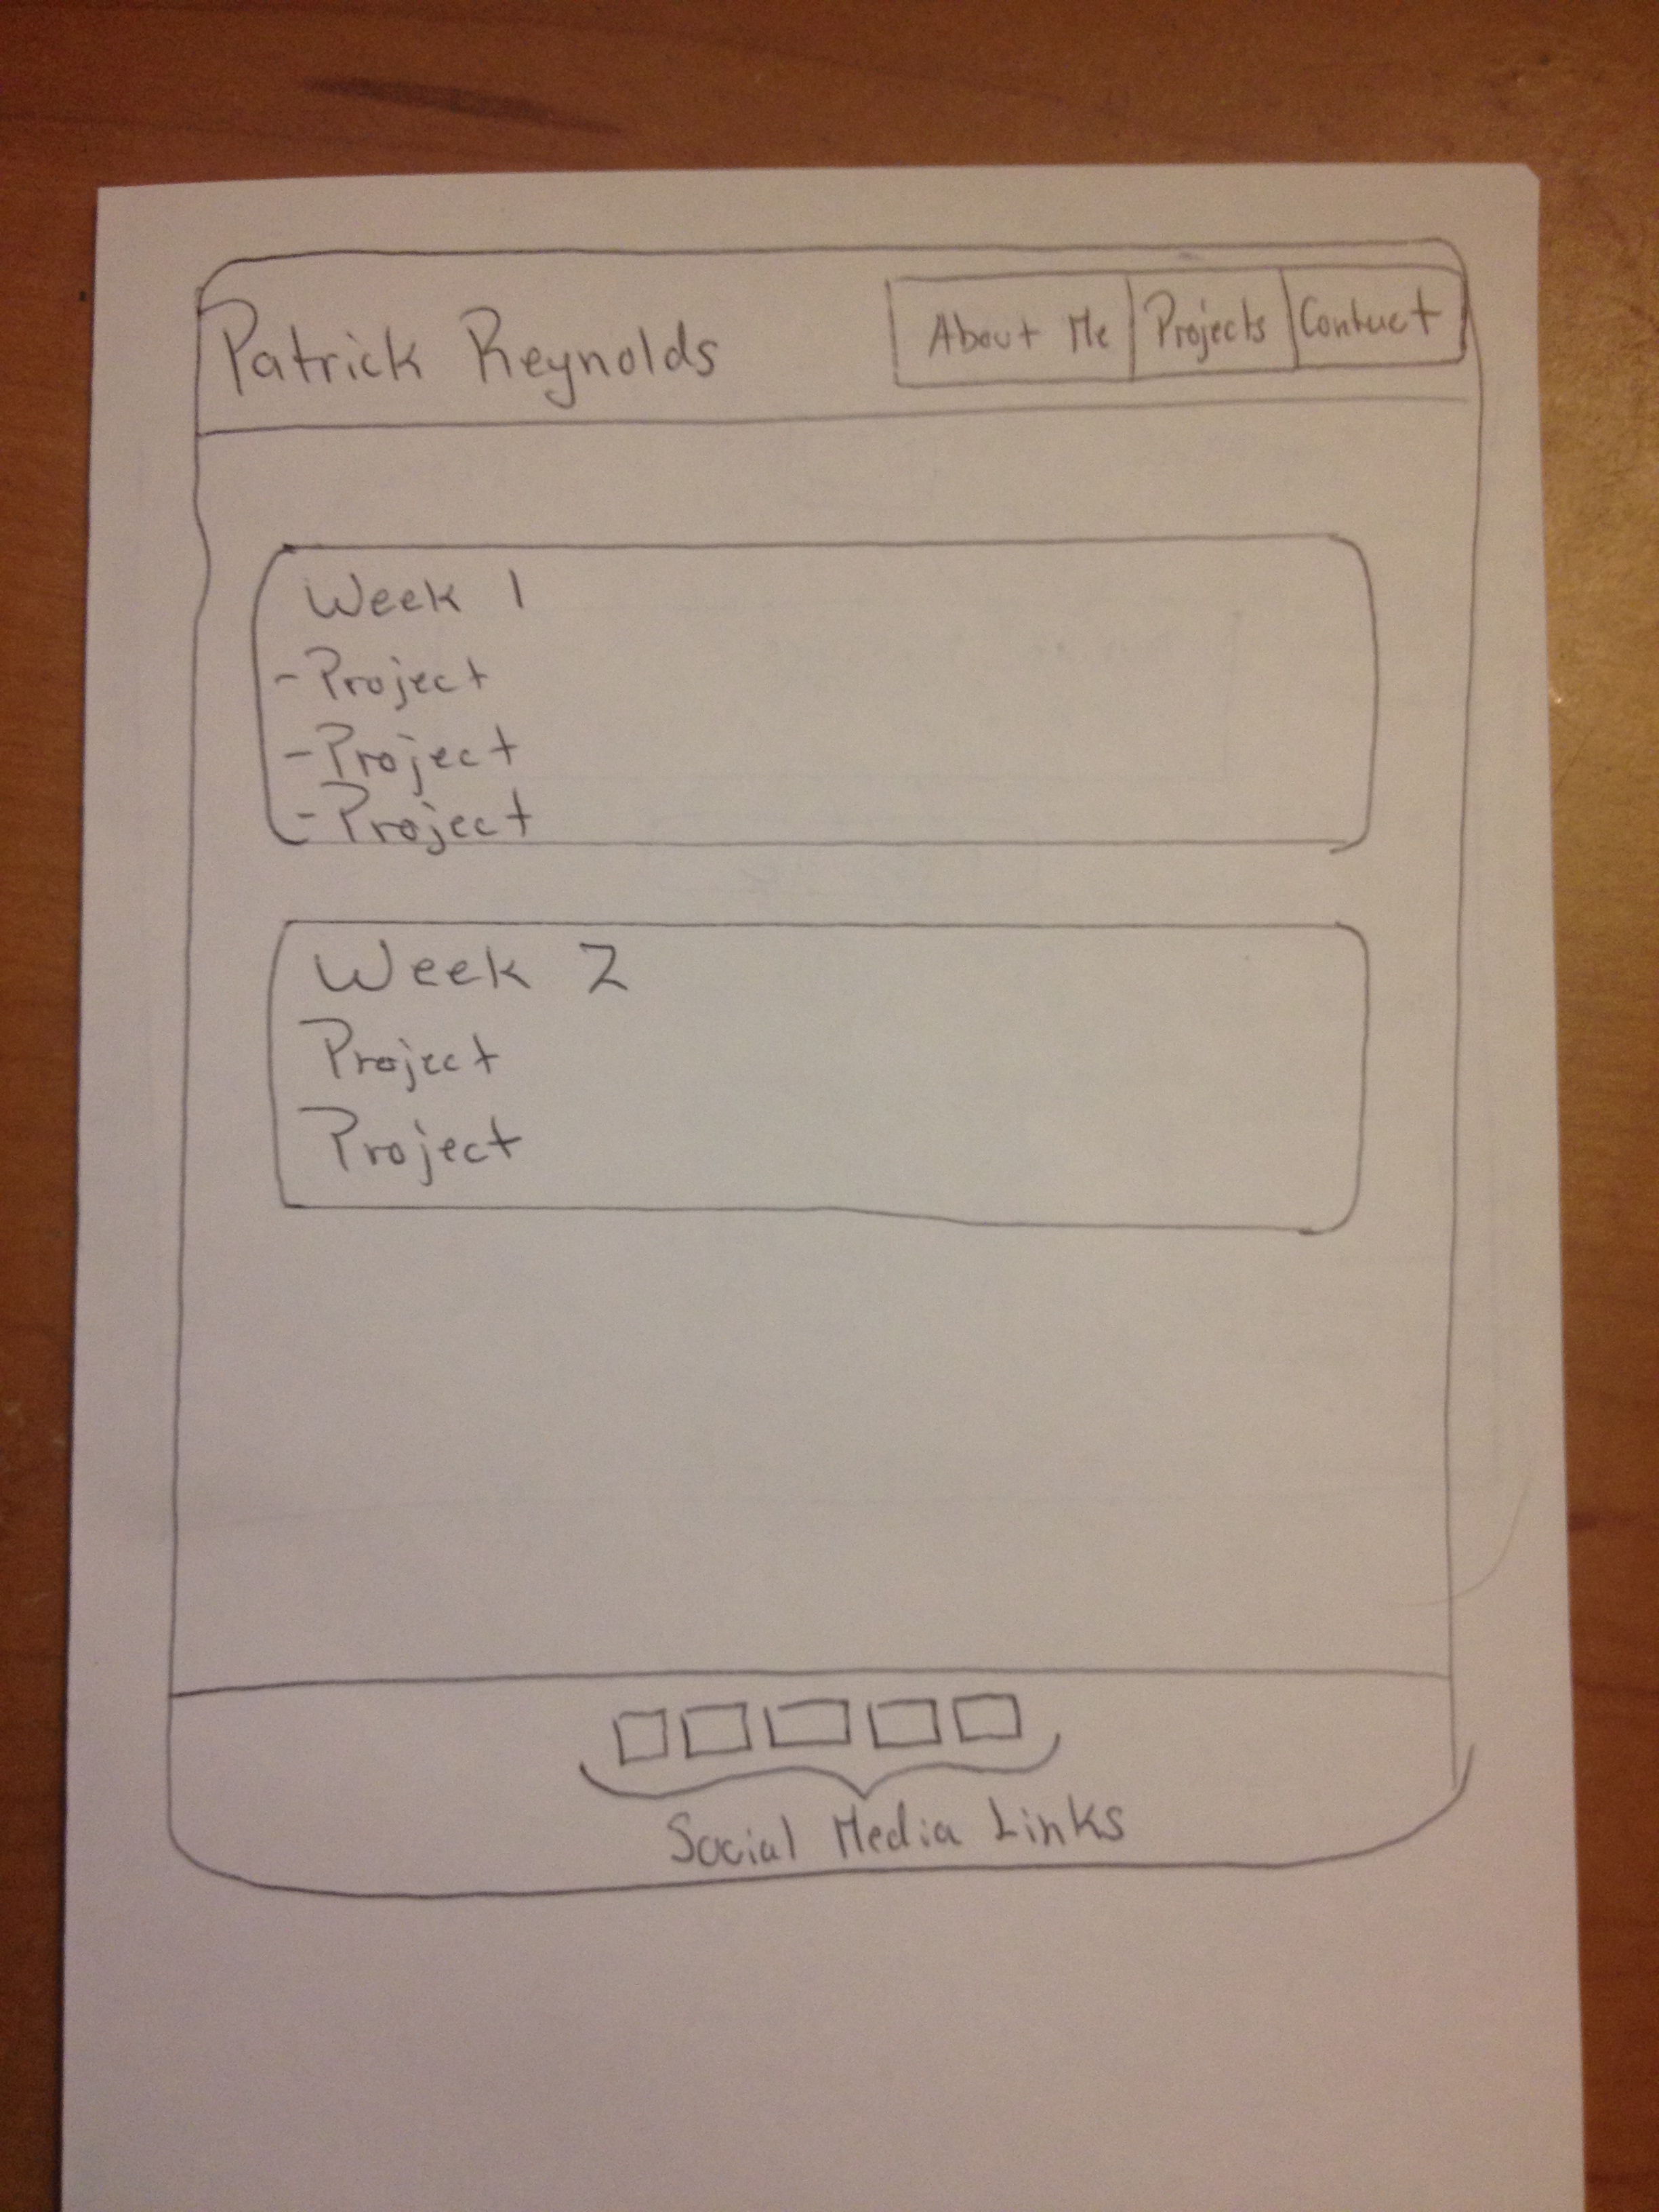 Patrick Reynolds
About Me Projects Contact
Week 1
- Project
- Project
- Project
Week 2
Project
Project
Social Media Links